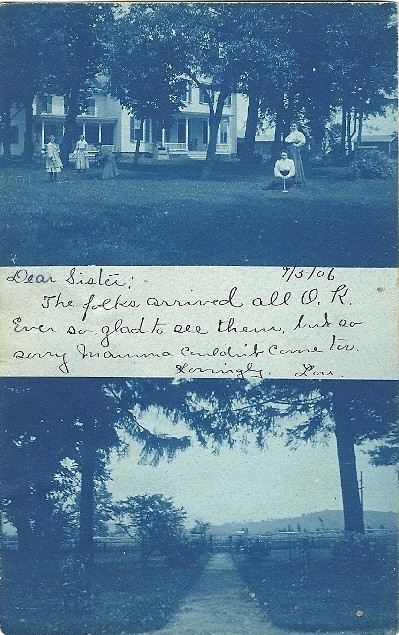 Dear Sister; 9/5/06
The folks arrived all O.K.
Ever so glad to see them, but so
sorry Mamma couldn't come too.
Lovingly, Lou.